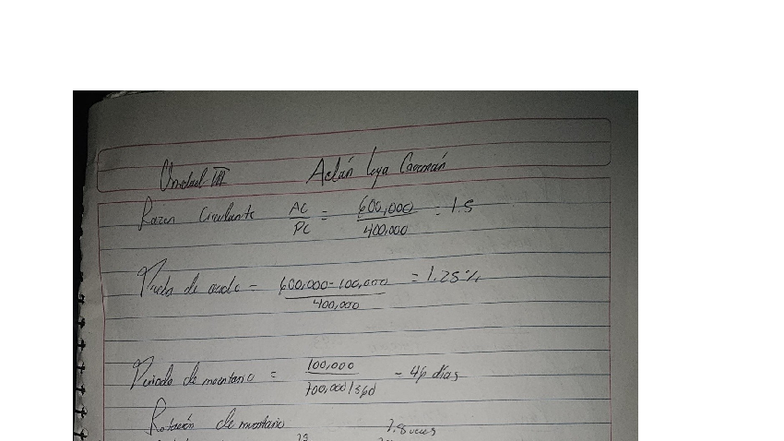 Unidad VII Adán Leya Caamán
Razon Circulante AC/PC = 600,000/400,000 = 1.5
Prueba de acido = 600,000-100,000/400,000 = 1.25%
Periodo de inventario = 100,000/700,000/360 - 46 días
Rotación de inventario 7.8 veces